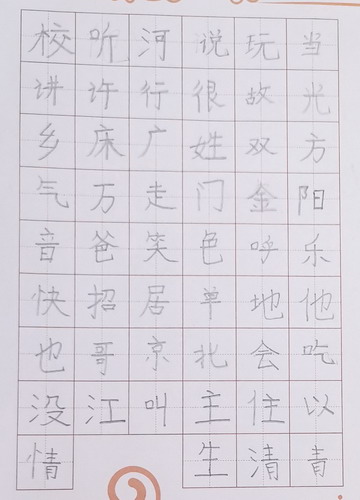 校听河说玩当
讲许行很故光
乡床广姓双方
气万走门金阳
音爸笑色呼乐
快招居单地他
也哥京北会吃
没江叫主住以
情 生清青